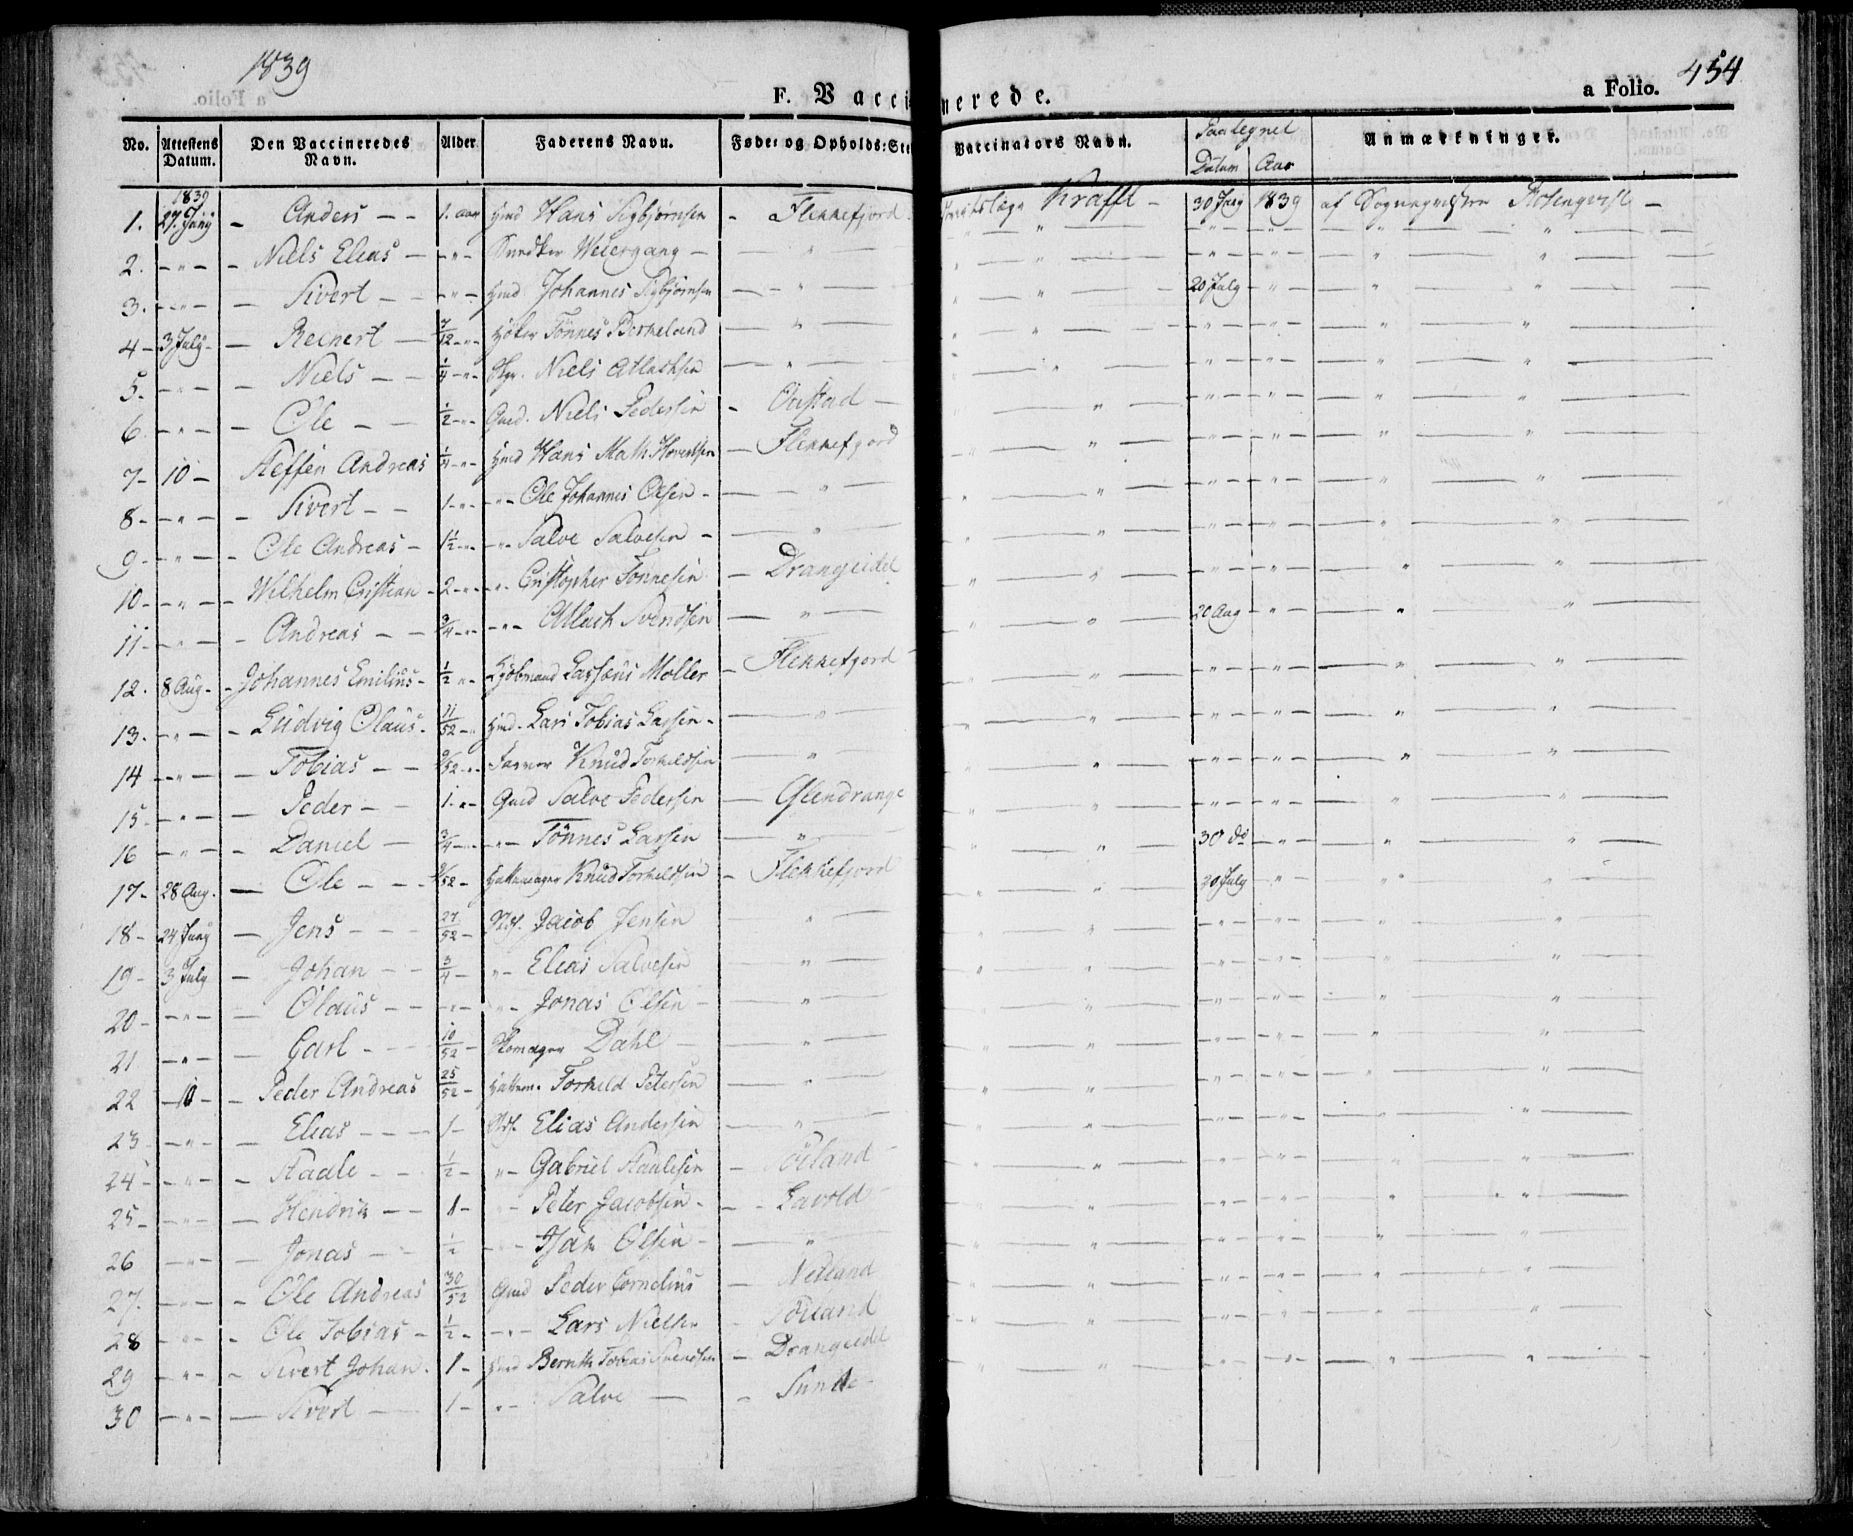 1839
F. Vaccinerede.
a Folio. 454
No. | Attestens Datum. | Den Vaccineredes Navn. | Alder | Faderens Navn. | Føde- og Opholds-Ste | Vaccinators Navn. | Paategnet Datum | Aar | Anmærkninger.
1. | 1839 27. Juny | Anders | 1. aar | Hmd Hans Sigbjørnsen | Flekkefjord | Krafft | 30 July | 1839 | af Sognepræsten Rosenqvist
2. | " | Niels Elias | " | Snedker Weiergang | " | " | " | " | "
3. | " | Sivert | " | Hmd Johannes Sigbjørnsen | " | " | 20 July | " | "
4 | 3 July | Reinert | 7/12 | Tönnes Birkeland | " | " | " | " | "
5. | " | Niels | 1/4 | Niels Atlaksen | " | " | " | " | "
6. | " | Ole | 1/2 | Gmd. Niels Pedersen | | " | " | " | "
7 | 10 | Steffen Andreas | 1/4 | Hmd Hans Math. | Flekkefjord | " | " | " | "
8 | " | Sivert | 1 | " Ole Johannes Olsen | " | " | " | " | "
9 | " | Ole Andreas | 1 1/2 | " Salve Salvesen | " | " | " | " | "
10 | " | Wilhelm Cristian | 2 | " Cristopher Tönnesen | Drangeidet | " | " | " | "
11 | " | Andreas | 3/4 | " Atlack Svendsen | " | " | 20 Aug | " | "
12. | 8 Aug | Johannes Emilius | 1/2 | Kjöbmand Lassæus Moller | Flekkefjord | " | " | " | "
13. | " | Ludvig Olaus | 11/52 | Hmd. Lars Tobias Larsen | " | " | " | " | "
14 | " | Tobias | 9/52 | Farver Knud Torkildsen | " | " | " | " | "
15 | " | Peder | 1 | Gmd Salve Pedersen | Glendrange | " | " | " | "
16 | " | Daniel | 3/4 | " Tönnes Larsen | " | " | 30 do | " | "
17 | 28 Aug. | Ole | 9/52 | Hattemager Knud Torkildsen | Flekkefjord | " | 30 July | " | "
18 | 24 Juny | Jens | 27/52 | Jacob Jensen | " | " | " | " | "
19 | 3 July | Johan | 3/4 | " Elias Salvesen | " | " | " | " | "
20 | " | Olaus | " | " Jonas Olsen | " | " | " | " | "
21 | " | Carl | 10/52 | Skomager Dahl | " | " | " | " | "
22 | 10 | Peder Andreas | 25/52 | Hattem. Torkild Petersen | " | " | " | " | "
23 | " | Elias | 1 | Elias Andersen | " | " | " | " | "
24 | " | Staale | 1/2 | " Gabriel Staalesen | | " | " | " | "
25 | " | Hendrik | 1 | " Peter Jacobsen | Lavold | " | " | " | "
26 | " | Jonas | 1/2 | " Isak Olsen | " | " | " | " | "
27. | " | Ole Andreas | 30/52 | Gmd Peder Cornelius | Netland | " | " | " | "
28 | " | Ole Tobias | 1/2 | " Lars Nielsen | | " | " | " | "
29 | " | Sivert Johan | 1 | Hmd Bernth Tobias Svendsen | Drangeidet | " | " | " | "
30 | " | Sivert | 1 | " Salve | Sunde